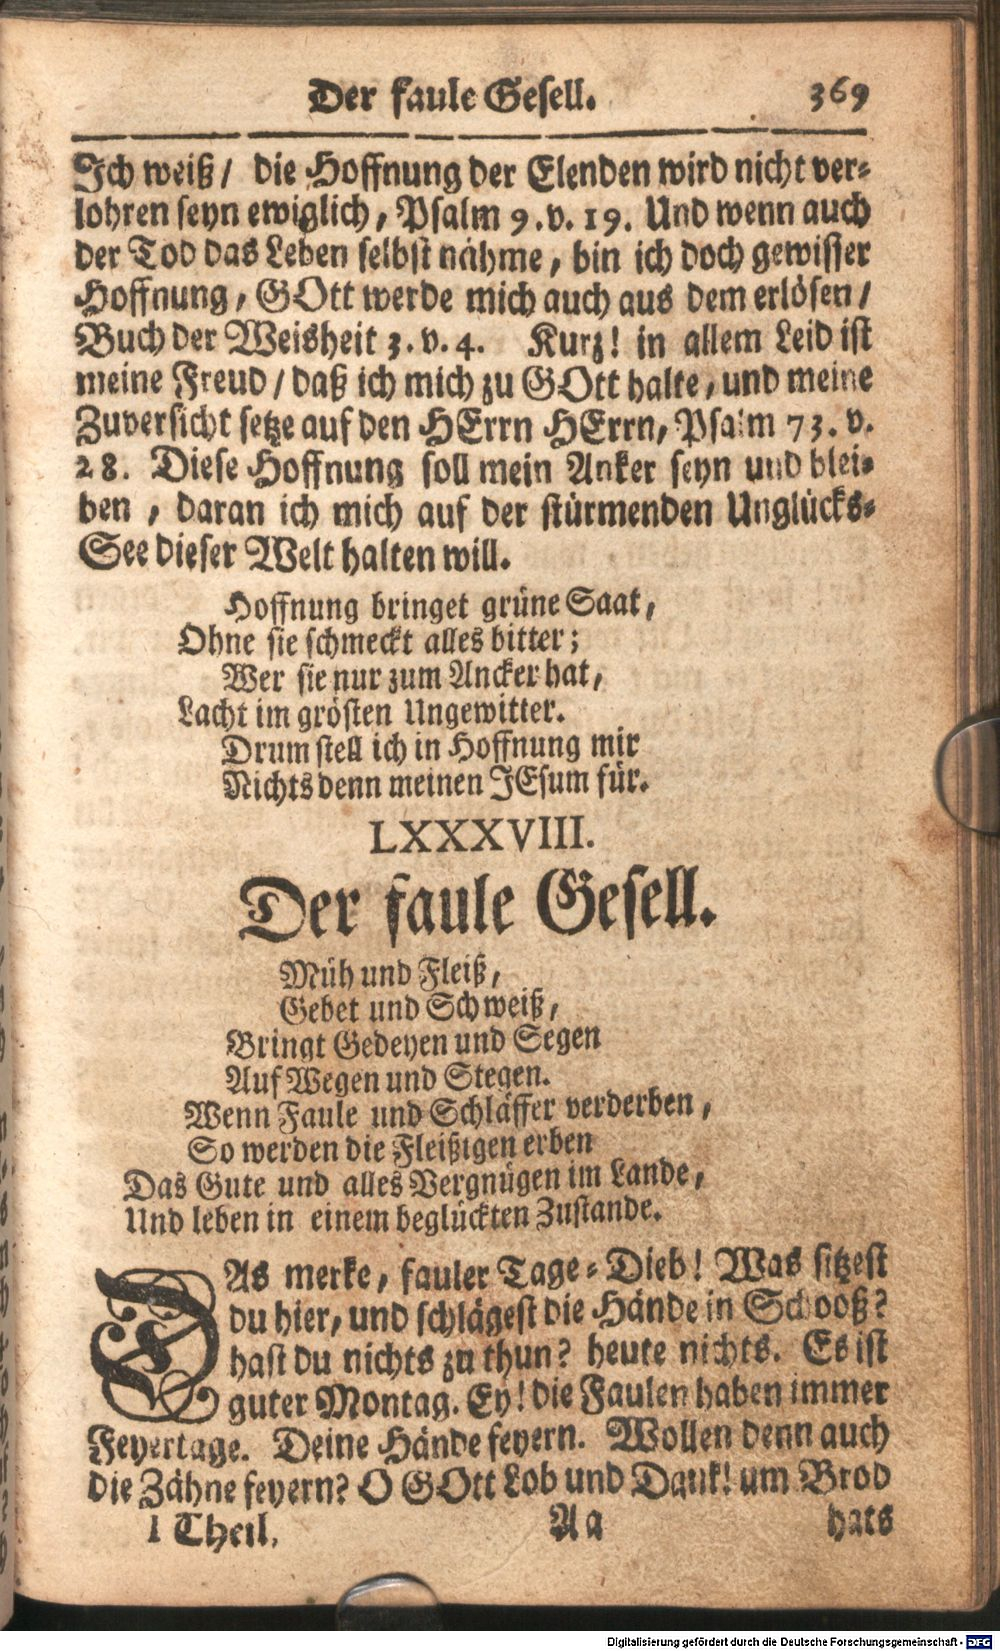 Der faule Gesell. 369
Ich weiß / die Hoffnung der Elenden wird nicht ver-
lohren seyn ewiglich, Psalm 9. v. 19. Und wenn auch
der Tod das Leben selbst nähme, bin ich doch gewisser
Hoffnung, GOtt werde mich auch aus dem erlösen /
Buch der Weisheit 3. v. 4. Kurz! in allem Leid ist
meine Freud / daß ich mich zu GOtt halte, und meine
Zuversicht setze auf den HErrn HErrn, Psalm 73. v.
28. Diese Hoffnung soll mein Anker seyn und blei-
ben, daran ich mich auf der stürmenden Unglücks-
See dieser Welt halten will.
Hoffnung bringet grüne Saat,
Ohne sie schmeckt alles bitter;
Wer sie nur zum Ancker hat,
Lacht im grösten Ungewitter.
Drum stell ich in Hoffnung mir
Nichts denn meinen JEsum für.
LXXXVIII.
Der faule Gesell.
Müh und Fleiß,
Gebet und Schweiß,
Bringt Gedeyen und Segen
Auf Wegen und Stegen.
Wenn Faule und Schläffer verderben,
So werden die Fleißigen erben
Das Gute und alles Vergnügen im Lande,
Und leben in einem beglückten Zustande.
DAs merke, fauler Tage-Dieb! Was sitzest
du hier, und schlägest die Hände in Schooß?
hast du nichts zu thun? heute nichts. Es ist
guter Montag. Ey! die Faulen haben immer
Feyertage. Deine Hände feyern. Wollen denn auch
die Zähne feyern? O GOtt Lob und Dank! um Brod
I Theil. Aa hats
Digitalisierung gefördert durch die Deutsche Forschungsgemeinschaft - DFG